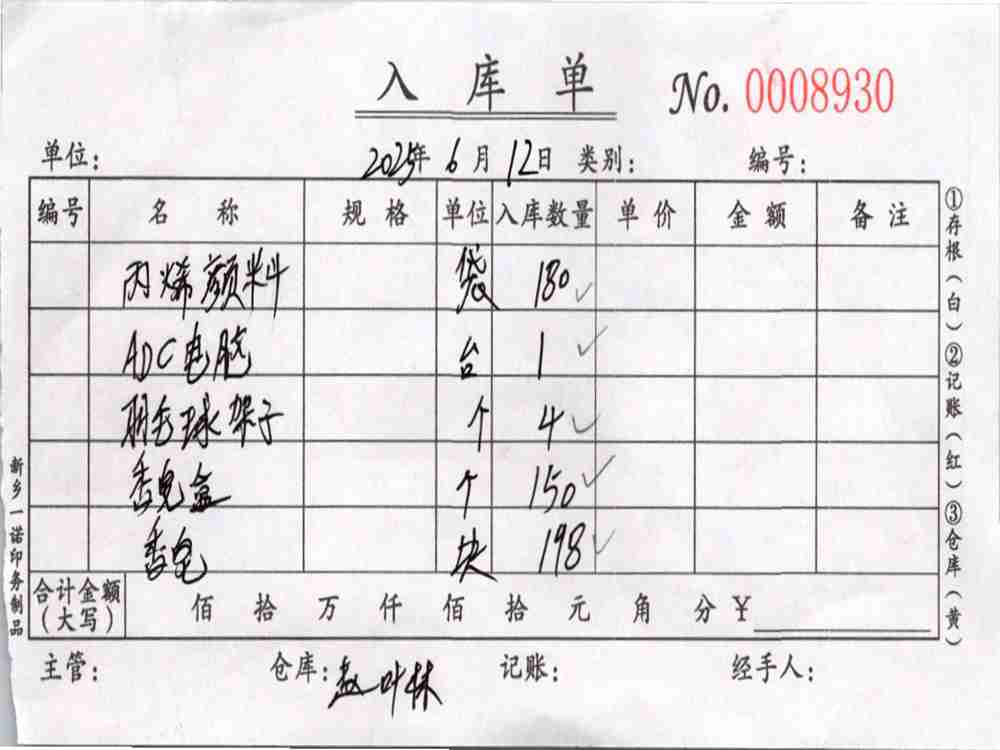 入库单 No. 0008930
单位： 2025年 6月 12日 类别： 编号：
编号 名称 规格 单位 入库数量 单价 金额 备注
丙烯颜料 袋 180
ADC电脑 台 1
羽毛球架子 个 4
香皂盒 个 150
香皂 块 198
合计金额（大写） 佰 拾 万 仟 佰 拾 元 角 分 ￥
主管： 仓库：赵叶林 记账： 经手人：
①存根（白）②记账（红）③仓库（黄）
新乡一诺印务制品